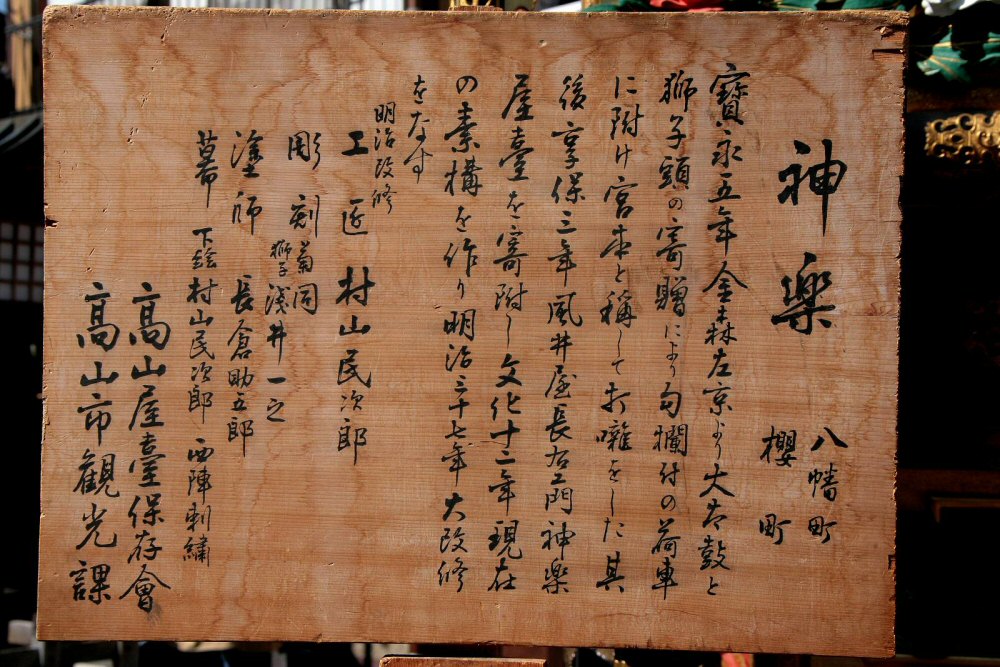 神楽
八幡町
櫻町
寶永五年金森左京より大太鼓と
獅子頭の寄贈により勾欄付の荷車
に附け宮本と稱して打囃をした其
後享保三年風井屋長右エ門神楽
屋臺を寄附し文化十二年現在
の素構を作り明治三十七年大改修
をなす
明治改修
工匠 村山民次郎
彫刻 菊同
獅子 浅井一之
塗師 長倉助五郎
幕 下絵村山民次郎 西陣刺繍
高山屋臺保存會
高山市観光課